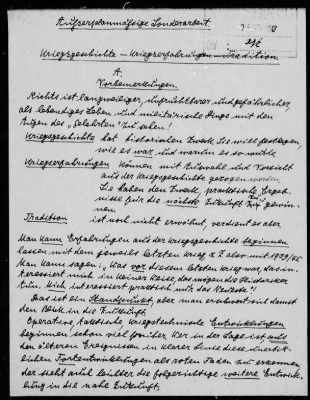 Außerplanmäßige Sonderarbeit.
Kriegsgeschichte – Kriegserfahrungen – Tradition.
A.
Vorbemerkungen.
Nichts ist langweiliger, unfruchtbarer und gefährlicher,
als lebendiges Leben und militärische Dinge mit den
Augen des „Gelehrten" zu sehen!
Kriegsgeschichte hat historischen Zweck. Sie will festlegen,
wie es war und warum es so wurde.
Kriegserfahrungen können mit Auswahl und Vorsicht
aus der Kriegsgeschichte gezogen werden.
Sie haben den Zweck, praktische Ergeb-
nisse für die nächste Zukunft zu gewin-
nen.
Tradition ist noch nicht erwähnt, verdient es aber
Man kann Erfahrungen aus der Kriegsgeschichte beginnen
lassen mit dem jeweils letzten Krieg z. B. also mit 1939/45.
Man kann sagen: „Was vor diesem letzten Krieg war, das in-
teressiert mich in keiner Weise, das mögen die Historiker
tun. Mich interessiert praktisch nur das Neueste."
Das ist ein Standpunkt, aber man erschwert sich damit
den Blick in die Zukunft.
Operative, taktische, kriegstechnische Entwicklungen
beginnen schon viel früher. Wer in der Lage ist aus
den älteren Ereignissen in klarer Linie diese
lichen Fortentwicklungen als roten Faden zu erkennen,
der sieht auch leichter die folgerichtige weitere Entwick-
lung in die nahe Zukunft.